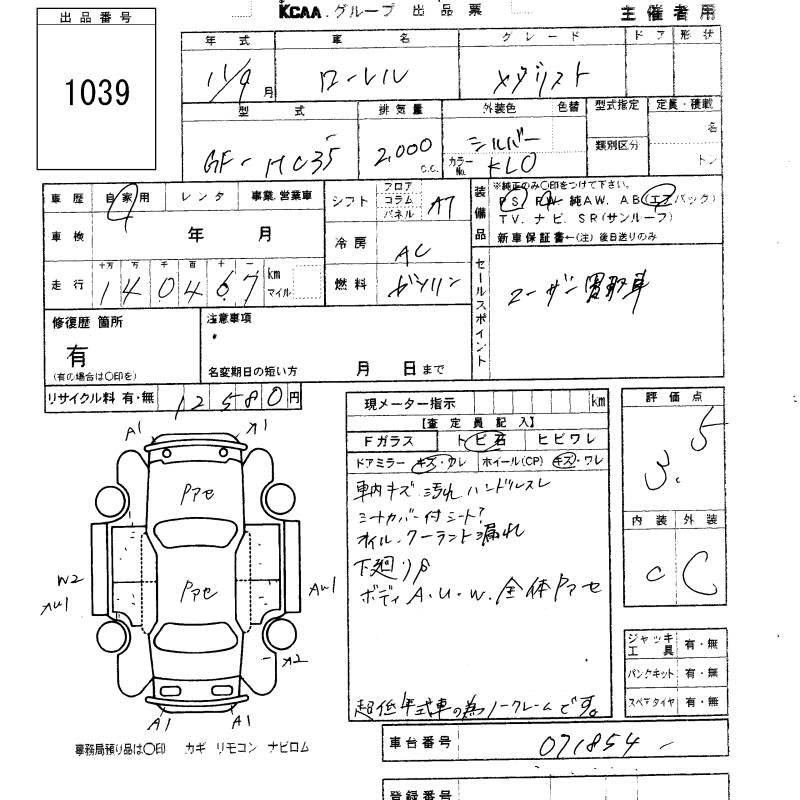 KCAA.グループ 出品票 主催者用
出品番号
1039
年式 車名 グレード ドア 形状
11/9月 ローレル メダリスト
型式 排気量 外装色 色替 型式指定 定員・積載
GF-HC35 2,000c.c. シルバー カラーNo. KL0 類別区分 名 トン
車歴 自家用 レンタ 事業.営業車
シフト フロア コラム パネル AT
装備品 ※純正のみ○印をつけて下さい。
PS. PW. 純AW. AB(エアバック)
TV. ナビ. SR(サンルーフ)
新車保証書←(注)後日送りのみ
車検 年 月
冷房 AC
走行 十万 万 千 百 十 一
140467 km マイル
燃料 ガソリン
セールスポイント ユーザー買取車
修復歴 箇所
有
(有の場合は○印を)
注意事項
名変期日の短い方 月 日まで
リサイクル料 有・無 12580円
現メーター指示 km
【査定員記入】
Fガラス トビ石 ヒビワレ
ドアミラー キズ・ワレ ホイール(CP) キズ・ワレ
車内キズ 汚れ ハンドルスレ
シートカバー付シート?
オイル・クーラント漏れ
下廻りS
ボディA.U.W. 全体Pアセ
超低年式車の為ノークレームです。
評価点
3.5
内装 外装
C C
ジャッキ 工具 有・無
パンクキット 有・無
スペアタイヤ 有・無
A1 A1
Pアセ
W2
AU1
Pアセ
AU1
A2
A1 A1
事務局預り品は○印 カギ リモコン ナビロム
車台番号 071854
登録番号